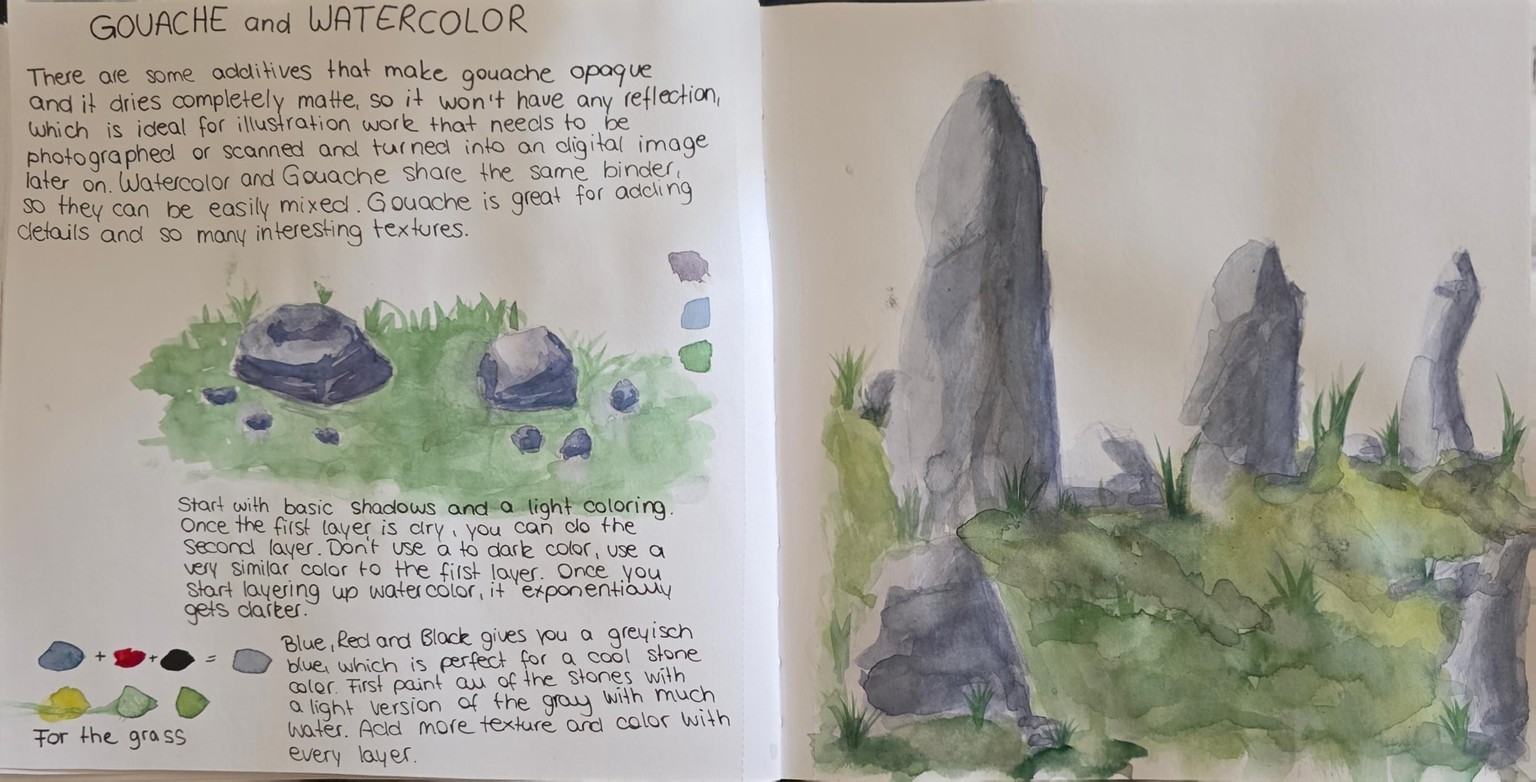 GOUACHE and WATERCOLOR
There are some additives that make gouache opaque
and it dries completely matte, so it won't have any reflection,
which is ideal for illustration work that needs to be
photographed or scanned and turned into an digital image
later on. Watercolor and Gouache share the same binder,
so they can be easily mixed. Gouache is great for adding
details and so many interesting textures.
Start with basic shadows and a light coloring.
Once the first layer is dry, you can do the
second layer. Don't use a to dark color, use a
very similar color to the first layer. Once you
start layering up watercolor, it exponentially
gets darker.
+ + =
Blue, Red and Black gives you a greyisch
blue, which is perfect for a cool stone
color. First paint all of the stones with
a light version of the gray with much
water. Add more texture and color with
every layer.
For the grass